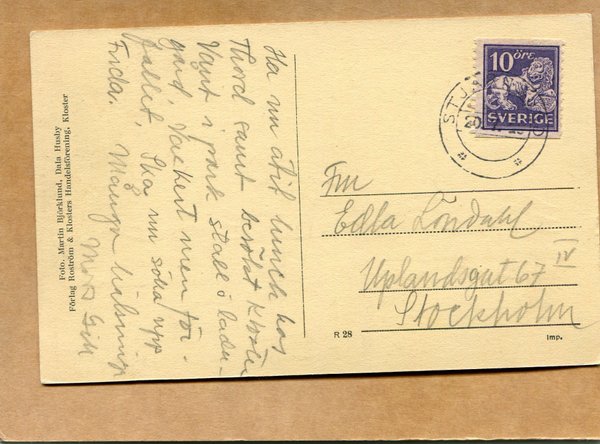 Ha nu ätit lunch hos
Thord samt besökt Kloster
Varit i park stall o ladu-
gård. Vackert men för-
fallet. Ska nu söka upp
Frida. Många hälsningar
Foto. Martin Björklund, Dala Husby
Förlag Roström & Klosters Handelsförening, Kloster
10 öre
SVERIGE
Fru
Edla Löndahl
Uplandsgat 67
IV
Stockholm
R 28
Imp.